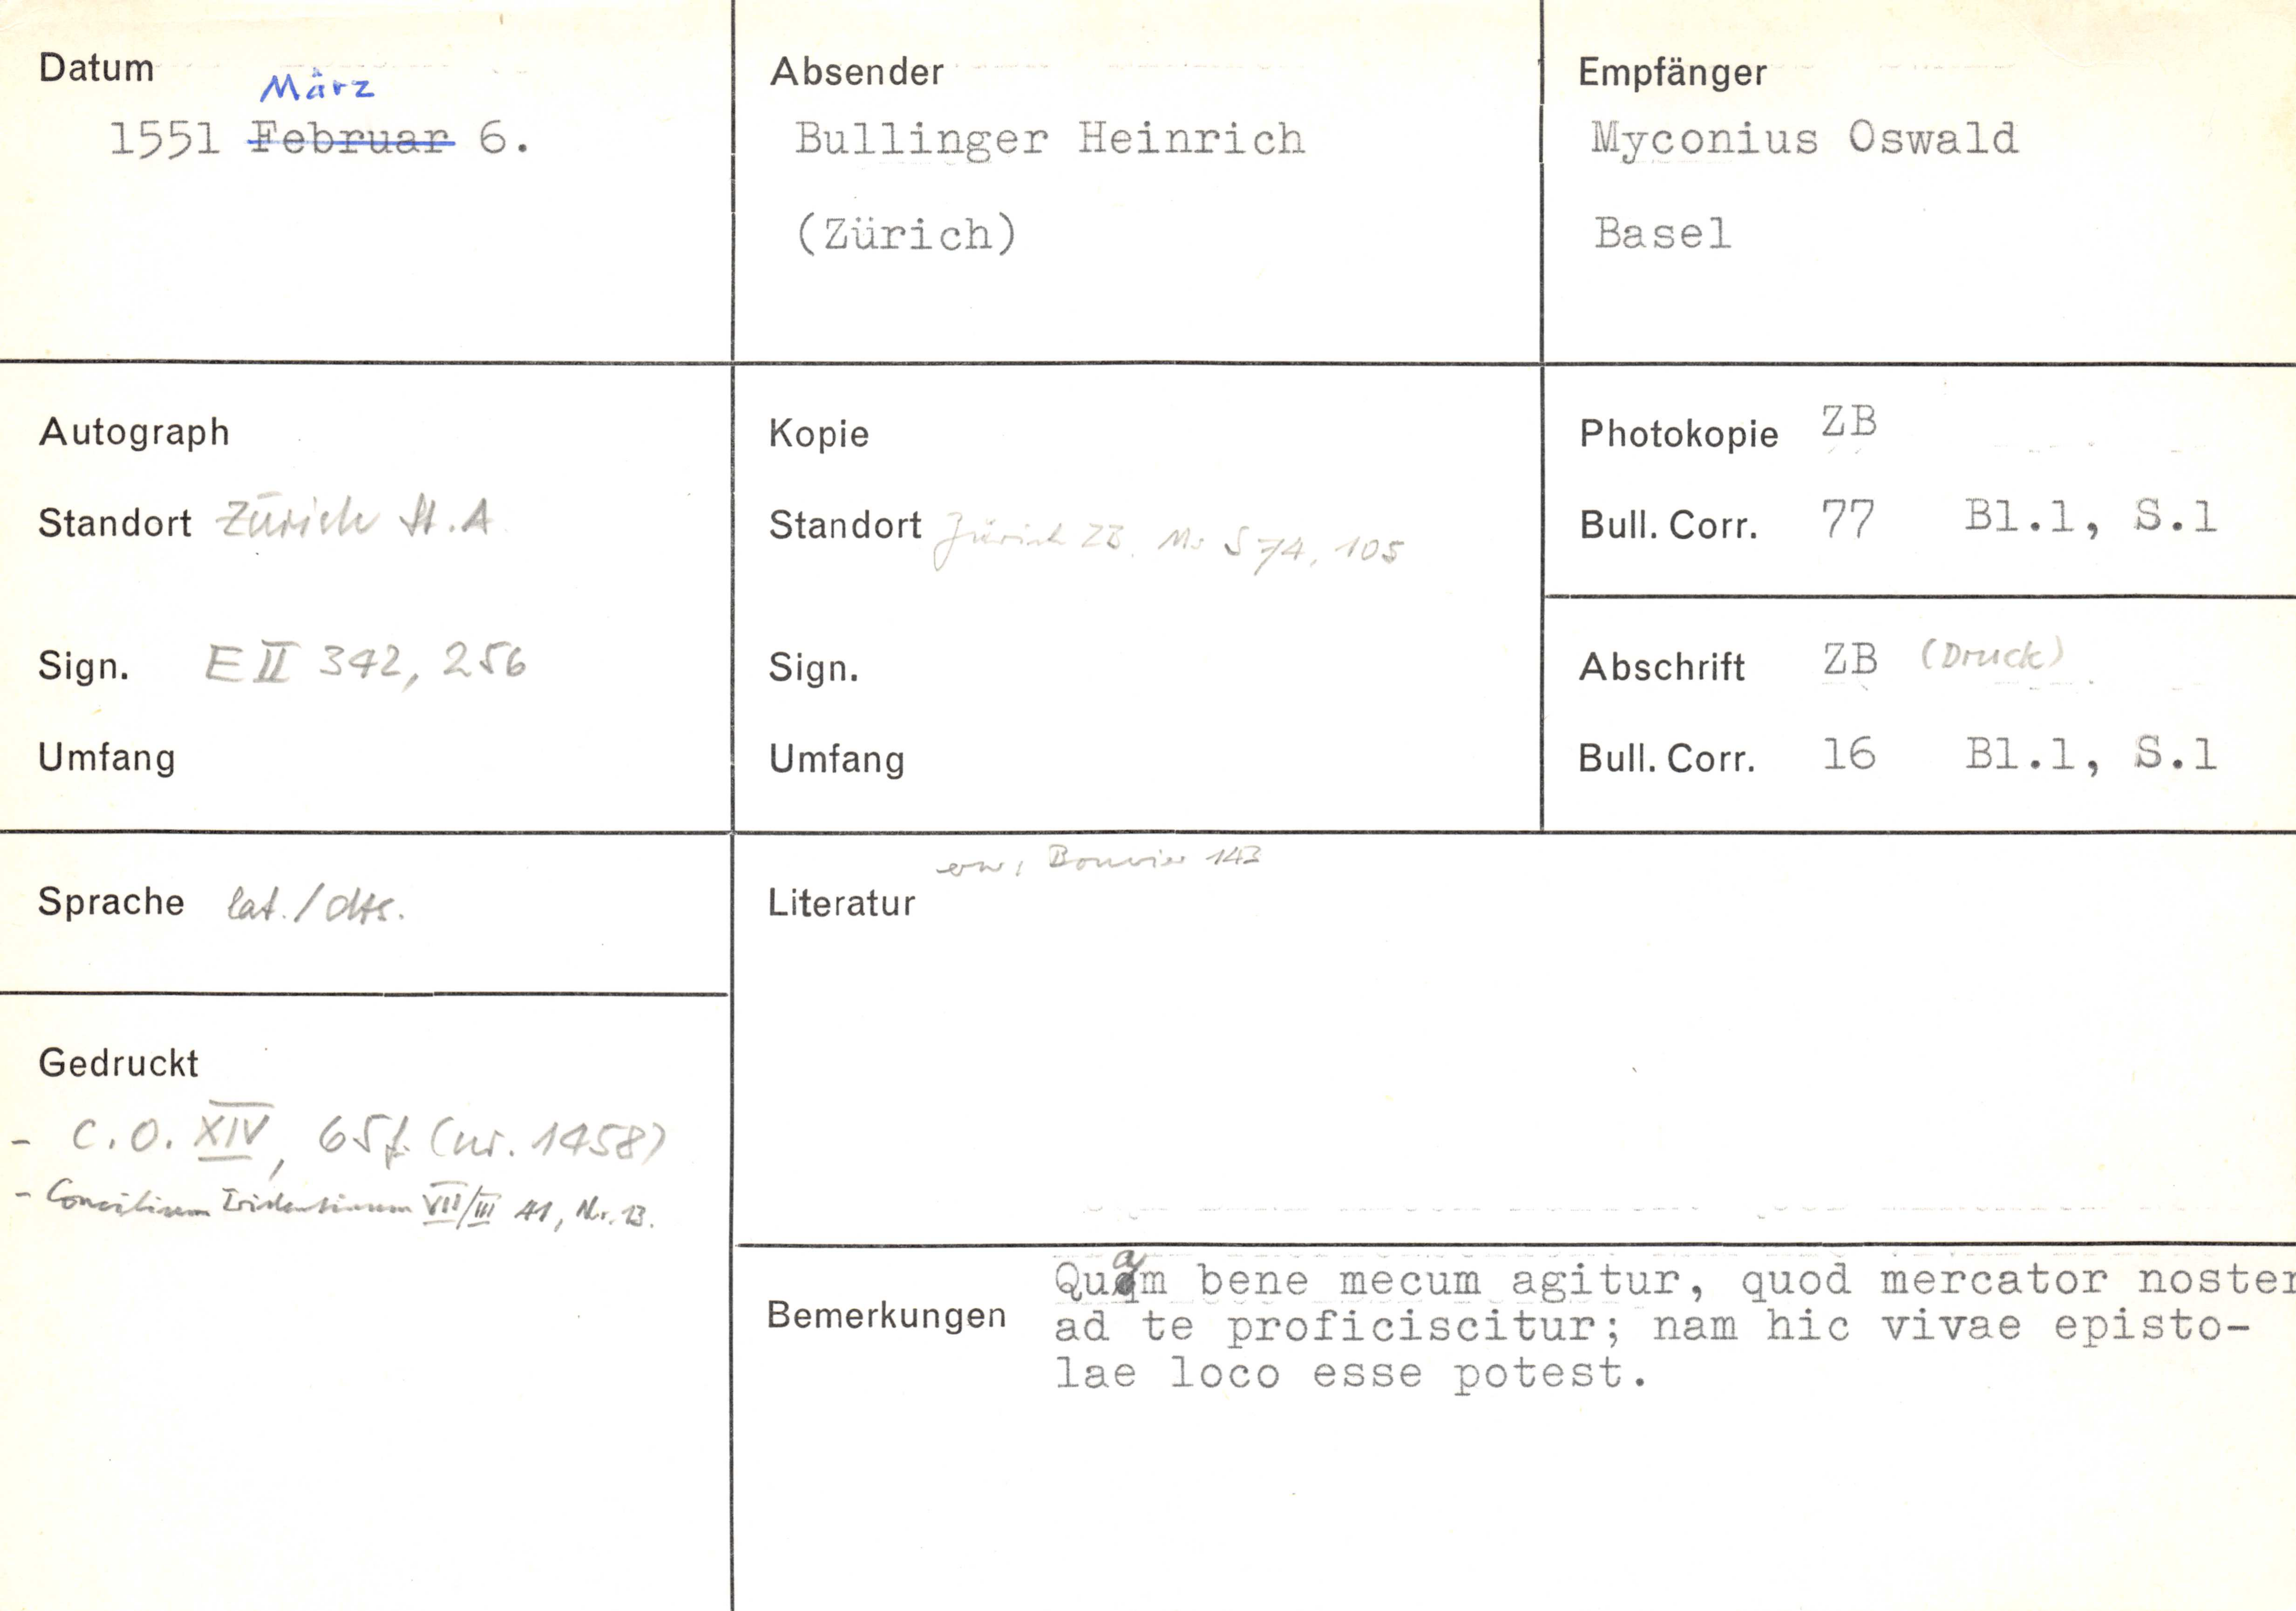 Datum
März
1551 Februar 6.
Absender
Bullinger Heinrich
(Zürich)
Empfänger
Myconius Oswald
Basel
Autograph
Standort Zürich St.A
Sign. E II 342, 256
Umfang
Kopie
Standort Zürich ZB. Ms S 74, 105
Sign.
Umfang
Photokopie ZB
Bull. Corr. 77 Bl.1, S.1
Abschrift ZB (Druck)
Bull. Corr. 16 Bl.1, S.1
Sprache lat./dts.
Gedruckt
- C.O. XIV, 65f. (nr. 1458)
- Concilium Tridentinum VII/III 41, Nr. 13.
erw, Bouvier 143
Literatur
Bemerkungen
Quam bene mecum agitur, quod mercator noster
ad te proficiscitur; nam hic vivae episto-
lae loco esse potest.